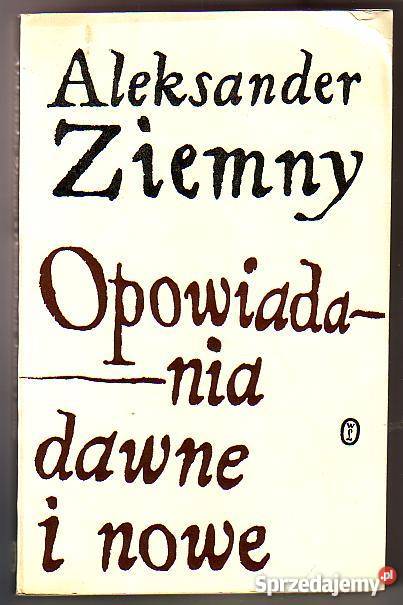 Aleksander
Ziemny
Opowiada-
nia
dawne
i nowe
WL
Sprzedajemy.pl